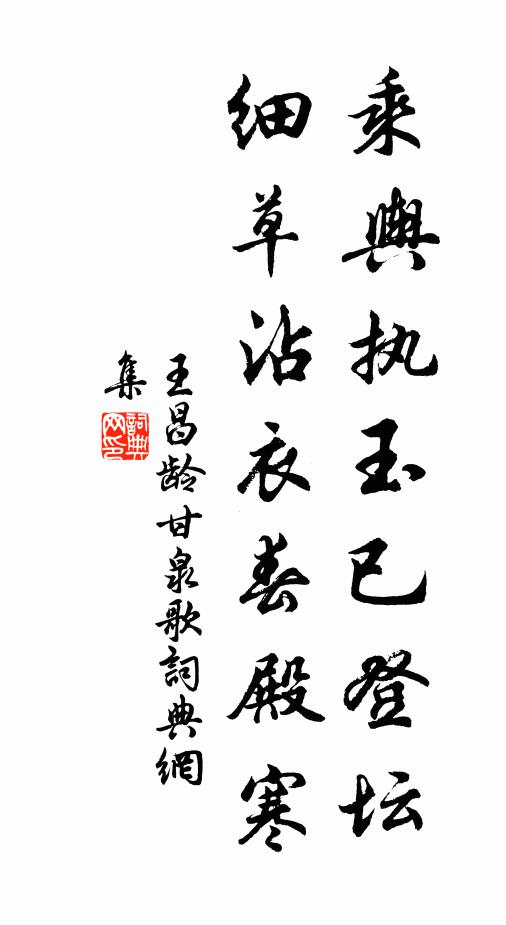 乘輿执玉已登坛
细草沾衣春殿寒
王昌龄甘泉歌詞典網
集
詞典
网印